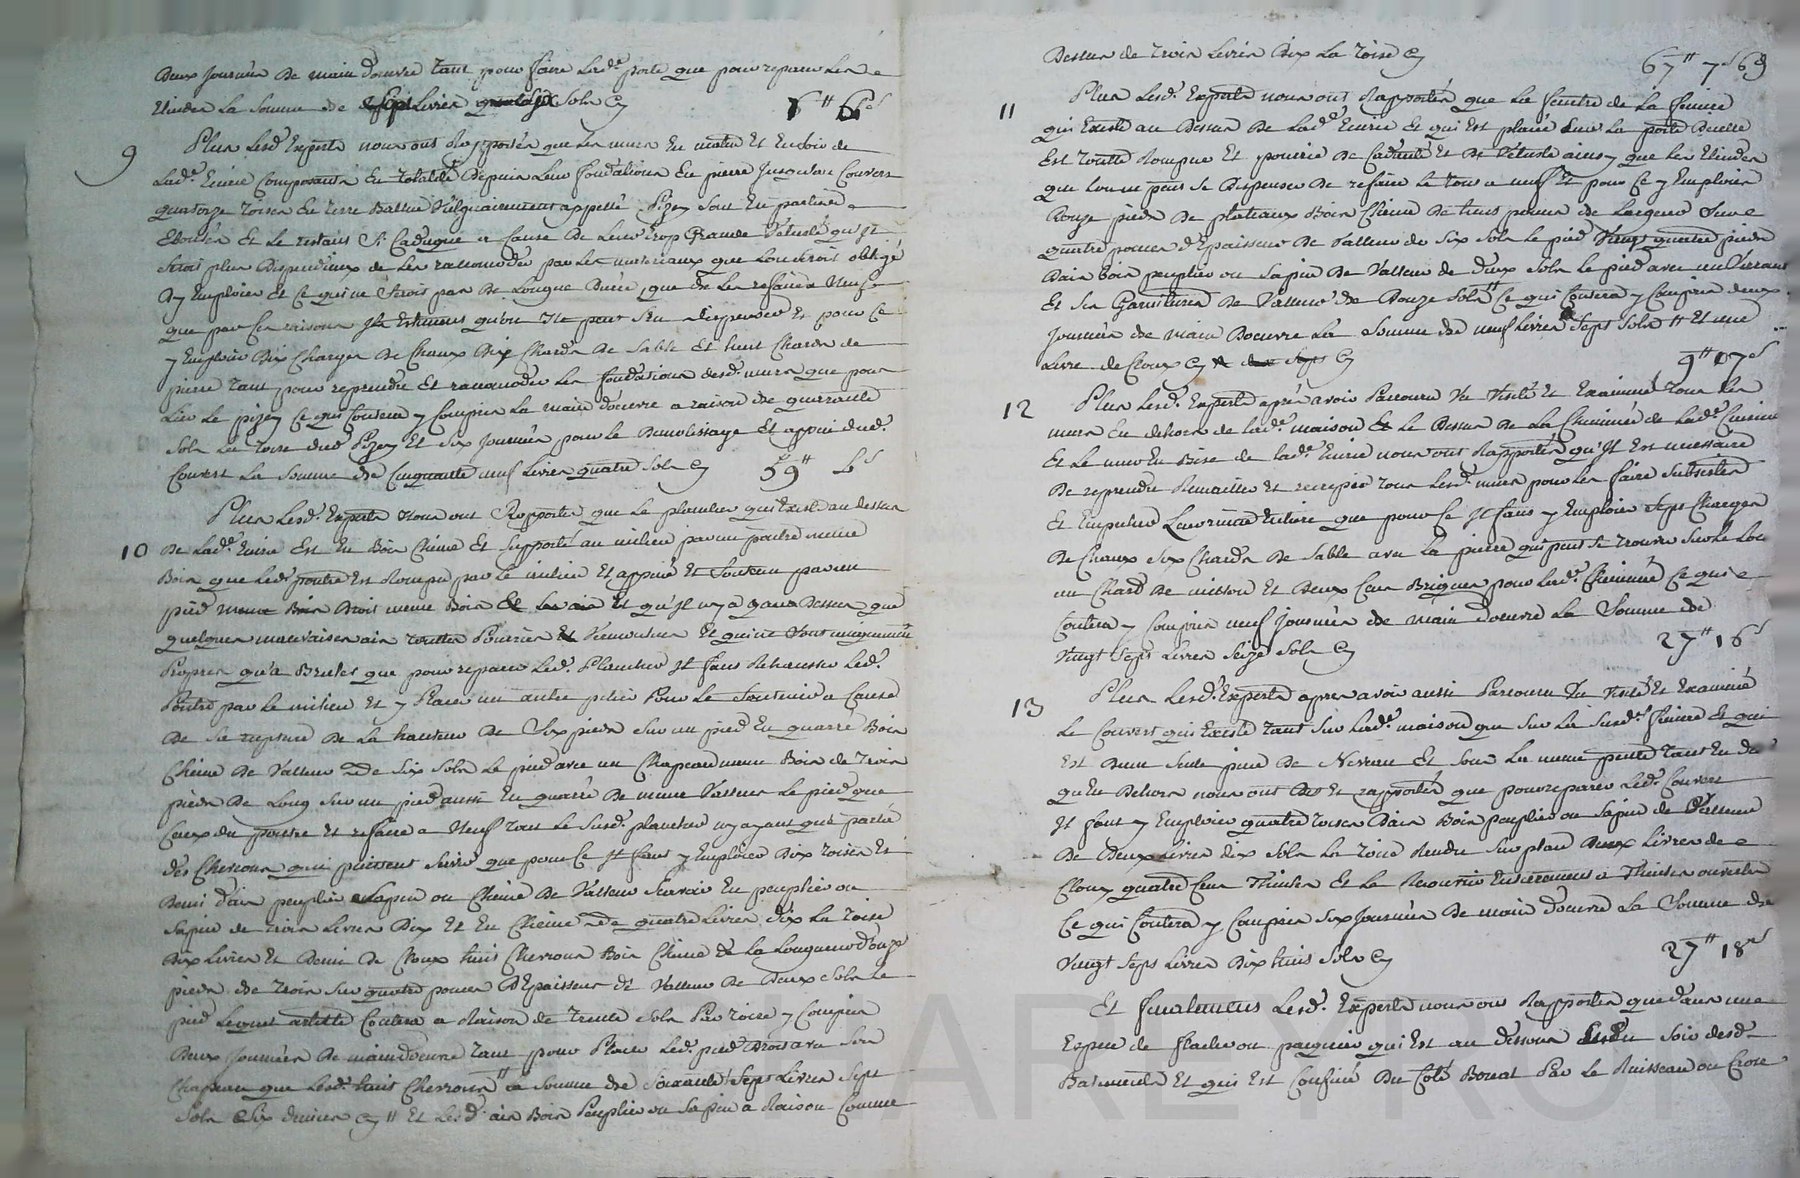 Deux Journées De main d'oeuvre tant pour faire Lesd. porte que pour reparer Les
la Somme de Livres Sols 6
9 Plus Lesd. Experts nous ont Rapportés que Les murs En matin Et En soir de
Lad.e Ecurie Composants En totalité Depuis Leur fondations En pierre Jusqu'au Couvert
quatorze toises En terre Battue Vulgairement appellé Pizey Sont En partie
Et le restant Si Caduque a Cause De Leur trop Grande Vétusté qu'Jl
Seroit plus Dispendieux de Les racomoder par Les materiaux que Lon Seroit obligé
D'y Employer Et Ce qui ne Seroit pas De Longue Durée, que de Les refaire a Neuf
que par Ces raisons Jls Estiment qu'on Ne peut S'en dispenser Et pour Ce
y Employer Dix Charges De Chaux Dix Chards De Sable Et huit Chards de
pierre tant pour reprendre Et racomoder Les fondations desd. murs que pour
Lier Le pizey Ce qui Coutera y Compris La main d'oeuvre a raison de quarante
Sols La toise dud. Pizey Et Six Journées pour le Demolissage Et appui dud.
Couvert La Somme de Cinquante neuf Livres quatre Sols 59# 4s
Plus Lesd. Experts Nous ont Rapportés que Le plancher qui Existe au dessus
10 De Lad.e Ecurie Est En Bois Chêne Et Supporté au milieu par un poutre même
Bois que Led. poutre Est Rompu par Le milieu Et appuié Et Soutenu par un
pied Droit même Bois Et qu'Jl n'y a par Dessus que
quelques mauvaises ais touttes Pourries Et Vermoulues Et qui ne Sont uniquement
Propres qu'a Bruler que pour reparer Led. Plancher Jl faut Rehausser Led.
Poutre par Le milieu Et y Placer un autre pilier Pour Le Soutenir a Cause
De Sa rupture De La hauteur De Six pieds Sur un pied En quarré Bois
Chêne De Valleur de Six Sols Le pied avec un Chapeau même Bois de Trois
pieds De Long Sur un pied aussi En quarré De même Valleur Le pied que
Ceux du poutre Et refaire a Neuf tout Le Susd. plancher n'y ayant que partie
des Chevrons qui puissent Servir que pour Ce Jl faut y Employer Dix toises Et
Demi d'ais peuplier Sapin ou Chêne De Valleur Savoir En peuplier ou
Sapin de trois Livres Dix Et En Chêne de quatre Livres Dix La toise
Dix Livres Et Demi De Cloux huit Chevrons Bois Chêne de La Longueur d'onze
pieds de Trois Sur quatre pouces D'Epaisseur de Valleur De Deux Sols Le
pied Lequel article Coutera a Raison de trente Sols Par toise y Compris
Deux Journées De main d'oeuvre tant pour Placer Led. pied Droit avec Son
Chapeau que Lesd. huit Chevrons La Somme de Soixante Sept Livres Sept
Sols Six deniers Et Lesd. ais Bois Peuplier ou Sapin a Raison Comme
Dessus de trois Livres Dix La toise 67# 7s 6d
11 Plus Lesd. Experts nous ont Rapportés que La fenêtre de La feniere
qui Existe au Dessus De Lad.e Ecurie Et qui Est placée Sur La porte D'icelle
Est toutte Rompue Et pourrie De Caducité Et De Vétusté ainsy que Les
que Lon ne peut Se Dispenser De refaire Le tout a neuf Et pour Ce y Employer
Douze pieds De plateaux Bois Chêne De huit pouces de Largeur Sur
quatre pouces d'Epaisseur De Valleur de Six Sols Le pied Vingt quatre pieds
D'ais bois peuplier ou Sapin De Valleur de Deux Sols Le pied avec un Verrouil
Et Sa Garniture De Valleur de Douze Sols Ce qui Coutera y Compris deux
Journées de main D'oeuvre La Somme de neuf Livres Sept Sols Et une
Livre de Cloux 9# 07s
12 Plus Lesd. Experts après avoir Parcouru Vu Visité Et Examiné Tous Les
murs En dehors de Lad.e maison Et Le Dessus De La Cheminée de Lad.e Cuisine
Et Le mur En Bise de Lad.e Ecurie nous ont Rapportés qu'Jl Est nécessaire
De reprendre Remailler Et recrepir tous Lesd. murs pour Les faire Subsister
Et Empêcher La ruine Entiere que pour Ce Jl faut y Employer Sept Charges
De Chaux Six Chards De Sable avec La pierre qui peut Se trouver Sur Le Lieu
un Chard De Et Deux Cens Briques pour Lad.e Cheminée Ce qui
Coutera y Compris neuf Journées de main d'oeuvre La Somme de
Vingt Sept Livres Seize Sols 27# 16s
13 Plus Lesd. Experts apres avoir aussi Parcouru Vu Visité Et Examiné
Le Couvert qui Existe tant Sur Lad.e maison que Sur La Susd.e feniere Et qui
Est D'une Seule piece De Niveau Et Sous La même pente tant En de
qu'En Dehors nous ont Dit Et rapportés que pour reparer Led. Couvert
Jl faut y Employer quatre toises D'ais Bois peuplier ou Sapin de Valleur
De Deux Livres dix Sols La toise Rendu Sur place Deux Livres de
Cloux quatre Cens Thuiles Et Le Recouvrir Entierement a Thuiles ouvertes
Ce qui Coutera y Compris Six Journées De main d'oeuvre La Somme de
Vingt Sept Livres Dix huit Sols 27# 18s
Et finalement Lesd. Experts nous ont Rapportés que dans une
Espece de ou paquier qui Est au dessous Et du Soir desd.
Batiments Et qui Est Confiné Du Coté Boreal Par Le Ruisseau ou Crose